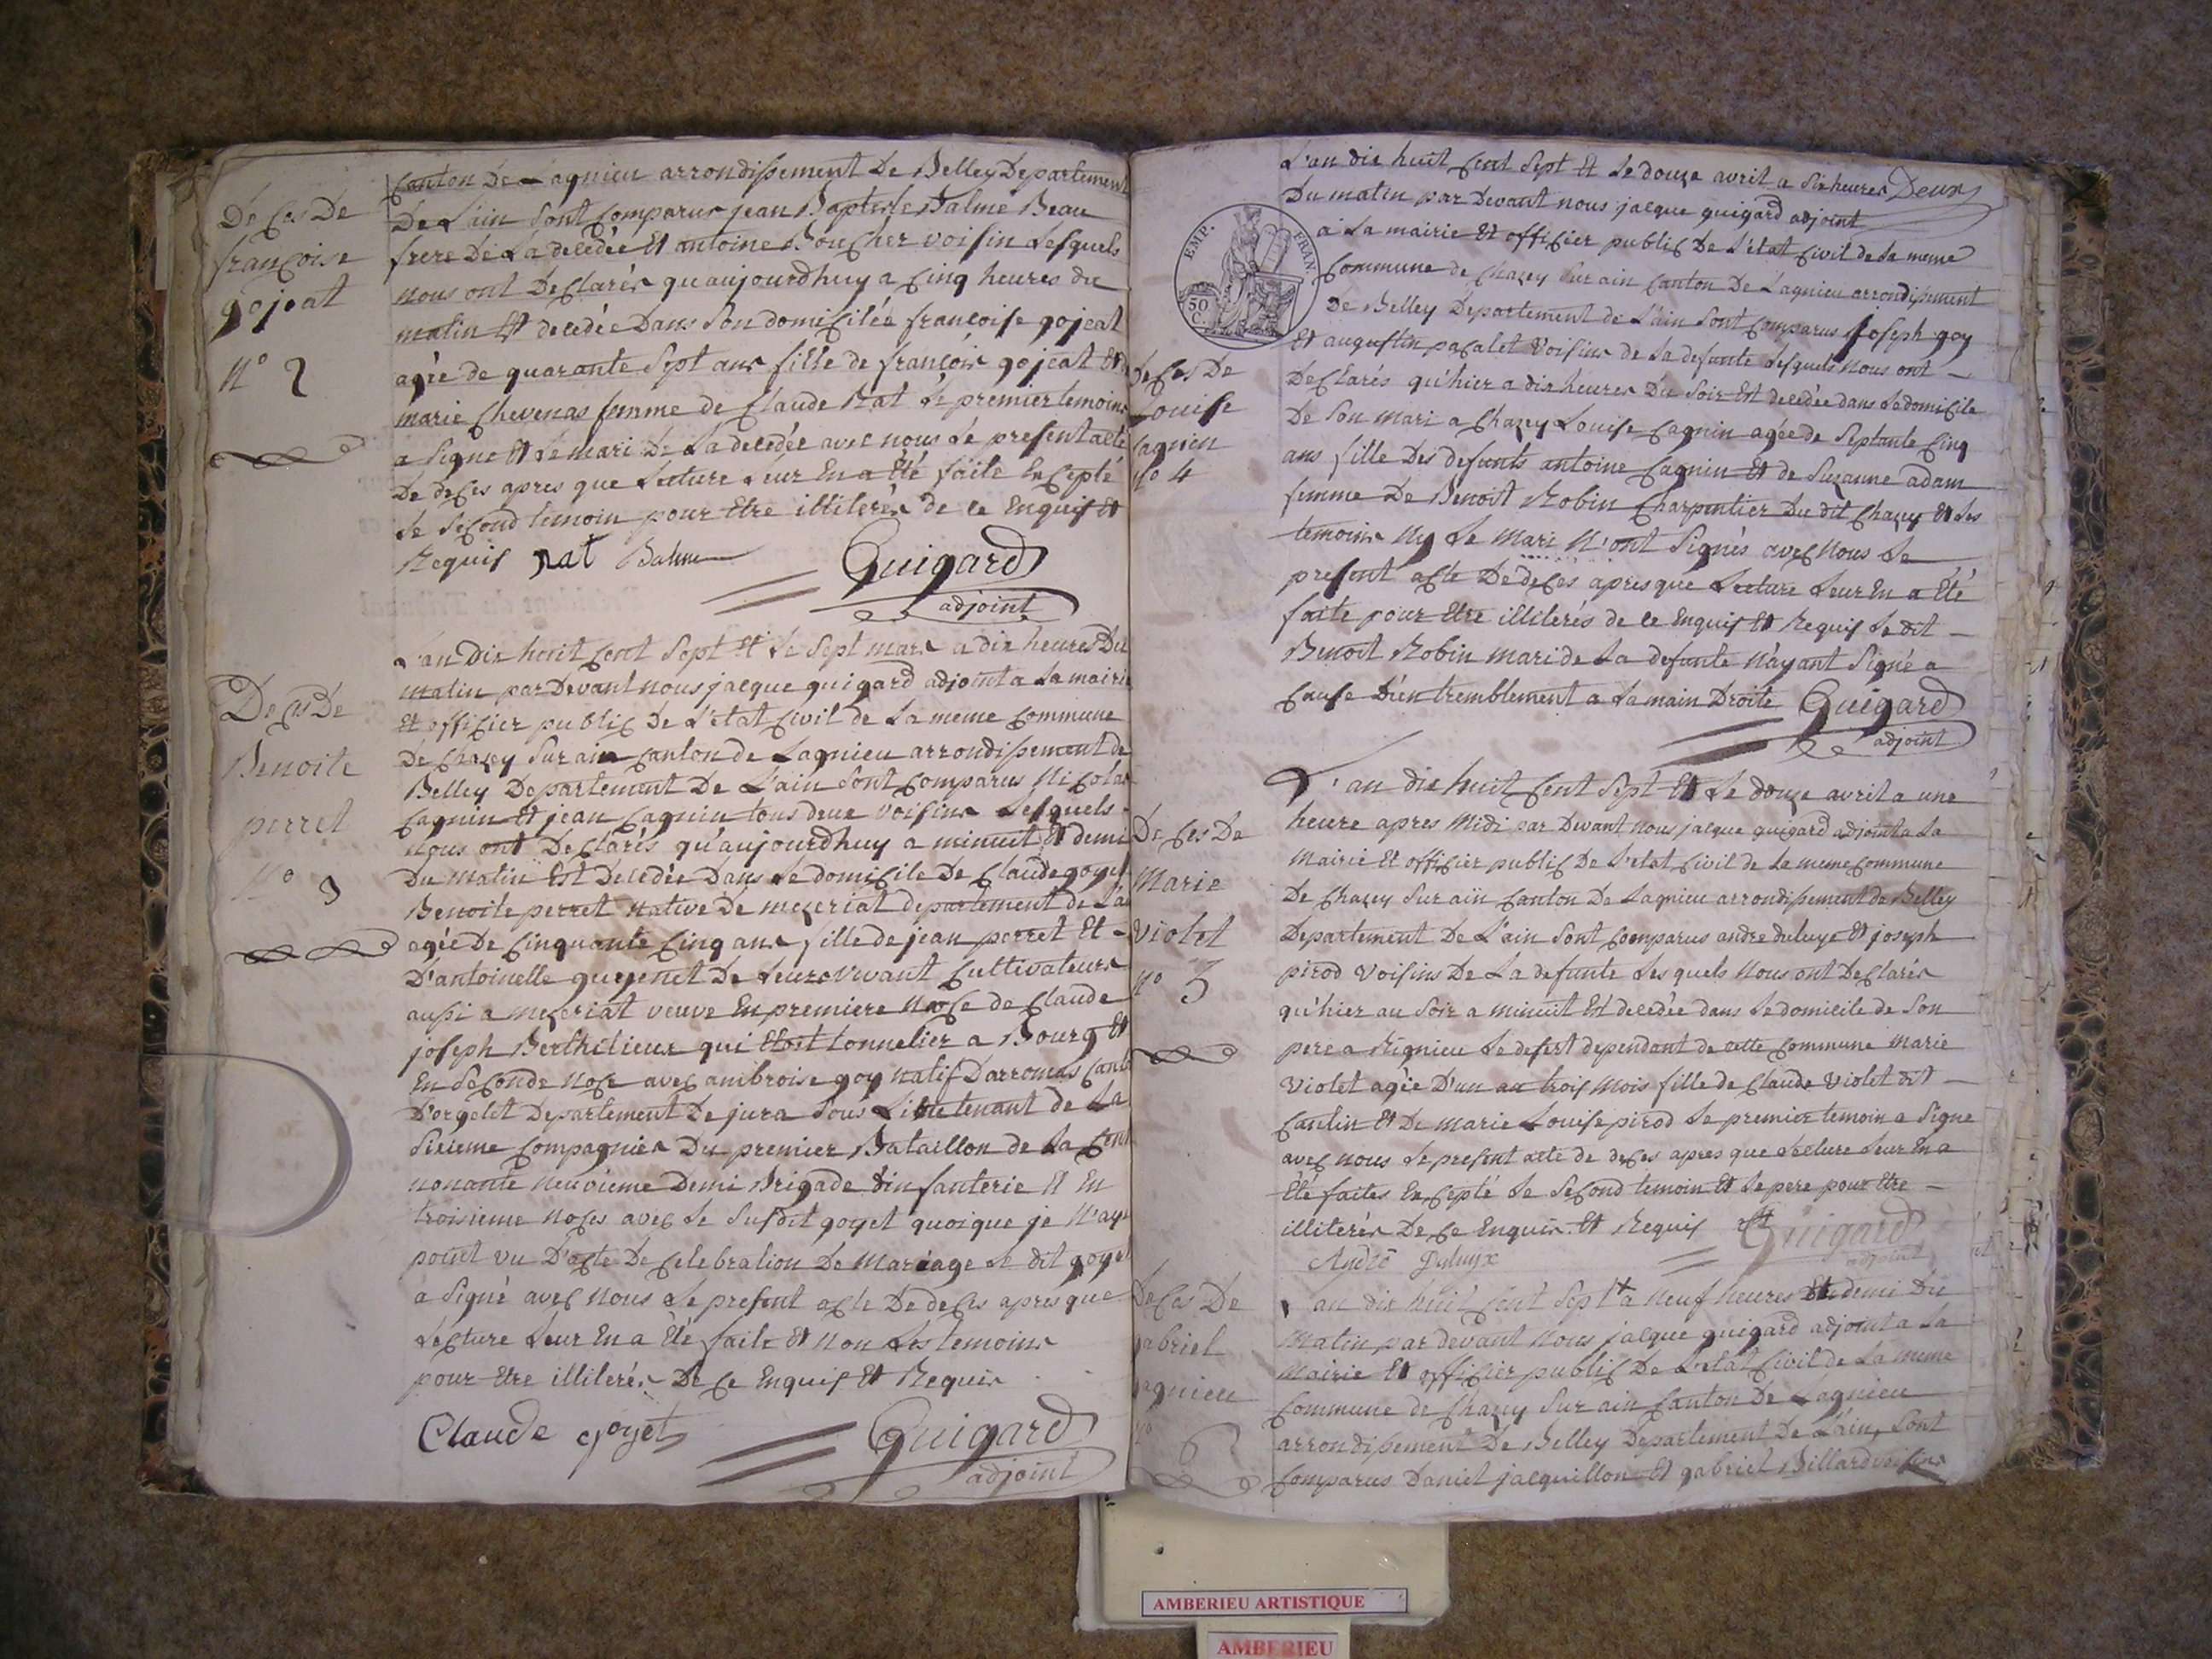 Canton De Lagnieu arrondissement De Belley Departement
De L'ain sont Comparus jean Baptiste Balme Beau
frere De La decedée Et antoine Boucher voisin Lesquels
nous ont Declarés qu'aujourdhuy a Cinq heures du
matin Est decedée Dans son domicilée francoise gojeat
agée de quarante Sept ans fille de françois gojeat Et
marie Chevenas femme de Claude Rat Le premier temoins
a Signé Et Le mari De La decedée avec nous Le present acte
De deces apres que Lecture Leur En a Eté faite Excepté
Le Second temoin pour Etre illiterés de ce Enquis Et
Requis Rat Balme Guigard
adjoint
Deces De
francoise
gojeat
N° 2
L'an Dix huit Cent Sept Et Le Sept mars a dix heures Du
matin par Devant nous jacque guigard adjoint a La mairie
Et officier public De L'etat Civil de La meme Commune
De Chazey Sur ain Canton de Lagnieu arrondissement de
Belley Departement De L'ain Sont Comparus Nicolas
Cagnin Et jean Cagnin tous deux voisins Lesquels
Nous ont Declarés qu'aujourdhuy a minuit Et demi
Du Matin Est Decedée Dans Le domicile De Claude goyet
Benoite perret Native De mezeriat departement de L'a
agée De Cinquante Cinq ans fille de jean perret Et
D'antoinette De Leurs vivant Cultivateurs
aussi a mezeriat veuve En premiere Noce de Claude
joseph Berthelieux qui Etoit tonnelier a Bourg Et
En Seconde Noce avec ambroise goy natif D'arromas Cant
D'orgelet Departement De jura Sous Lieutenant de La
Sixieme Compagnies Du premier Bataillon de La Cent
nonante Neuvieme Demi Brigade d'infanterie Et En
troisieme Noces avec Le Susdit goyet quoique je N'aye
point vu D'acte De Celebration De Mariage Le dit goyet
a Signé avec Nous Le present acte De deces apres que
Lecture Leur En a Eté faite Et Non Les temoins
pour Etre illiterés De Ce Enquis Et Requis
Claude goyet Guigard
adjoint
Deces De
Benoite
perret
N° 3
L'an dix huit Cent Sept Et Le douze avril a Six heures Deux
Du matin par Devant nous jacque guigard adjoint
a La mairie Et officier public De L'etat Civil de La meme
Commune de Chazey Sur ain Canton De Lagnieu arrondissement
De Belley Departement de L'ain Sont Comparus joseph goy
Et augustin pacalet Voisins de La defunte Lesquels Nous ont
Declarés qu'hier a dix heures Du Soir Est decedée dans Le domicile
De Son mari a Chazey Louise Cagnin agée de Septante Cinq
ans fille Des defunts antoine Cagnin Et de Suzanne adam
femme De Benoit Robin Charpentier Du dit Chazey Et Les
temoins Ny Le Mari N'ont Signés avec Nous Le
present acte De deces apres que Lecture Leur En a Eté
faite pour Etre illiterés de ce Enquis Et Requis Le dit
Benoit Robin mari de La defunte N'ayant Signé a
Cause D'un tremblement a La main Droite Guigard
adjoint
EMP. FRAN.
50 C.
Deces De
Louise
Cagnin
N° 4
L'an dix huit Cent Sept Et Le douze avril a une
heure apres Midi par Devant nous jacque guigard adjoint a La
Mairie Et officier public De L'etat Civil de La meme Commune
De Chazey Sur ain Canton De Lagnieu arrondissement de Belley
Departement De L'ain Sont Comparus andre duluye Et joseph
pirod Voisins De La defunte Lesquels Nous ont Declarés
qu'hier au Soir a Minuit Est decedée dans Le domicile de Son
pere a Rignieu Le desert dependant de cette Commune Marie
Violet agée D'un an trois Mois fille de Claude Violet dit
Cantin Et De Marie Louise pirod Le premier temoin a Signé
avec nous Le present acte de deces apres que Lecture Leur En a
Eté faites Excepté Le Second temoin Et Le pere pour Etre
illiterés De Ce Enquis Et Requis Guigard
André Duluye adjoint
Deces De
Marie
Violet
N° 5
L'an dix huit Cent Sept a Neuf heures Et demi Du
Matin par devant Nous jacque guigard adjoint a La
Mairie Et officier public De L'etat Civil de La meme
Commune de Chazey Sur ain Canton De Lagnieu
arrondissement De Belley Departement De L'ain, Sont
Comparus Daniel jacquillon Et gabriel Billard voisins
Deces De
gabriel
Cagnieu
N°
6
AMBERIEU ARTISTIQUE
AMBERIEU